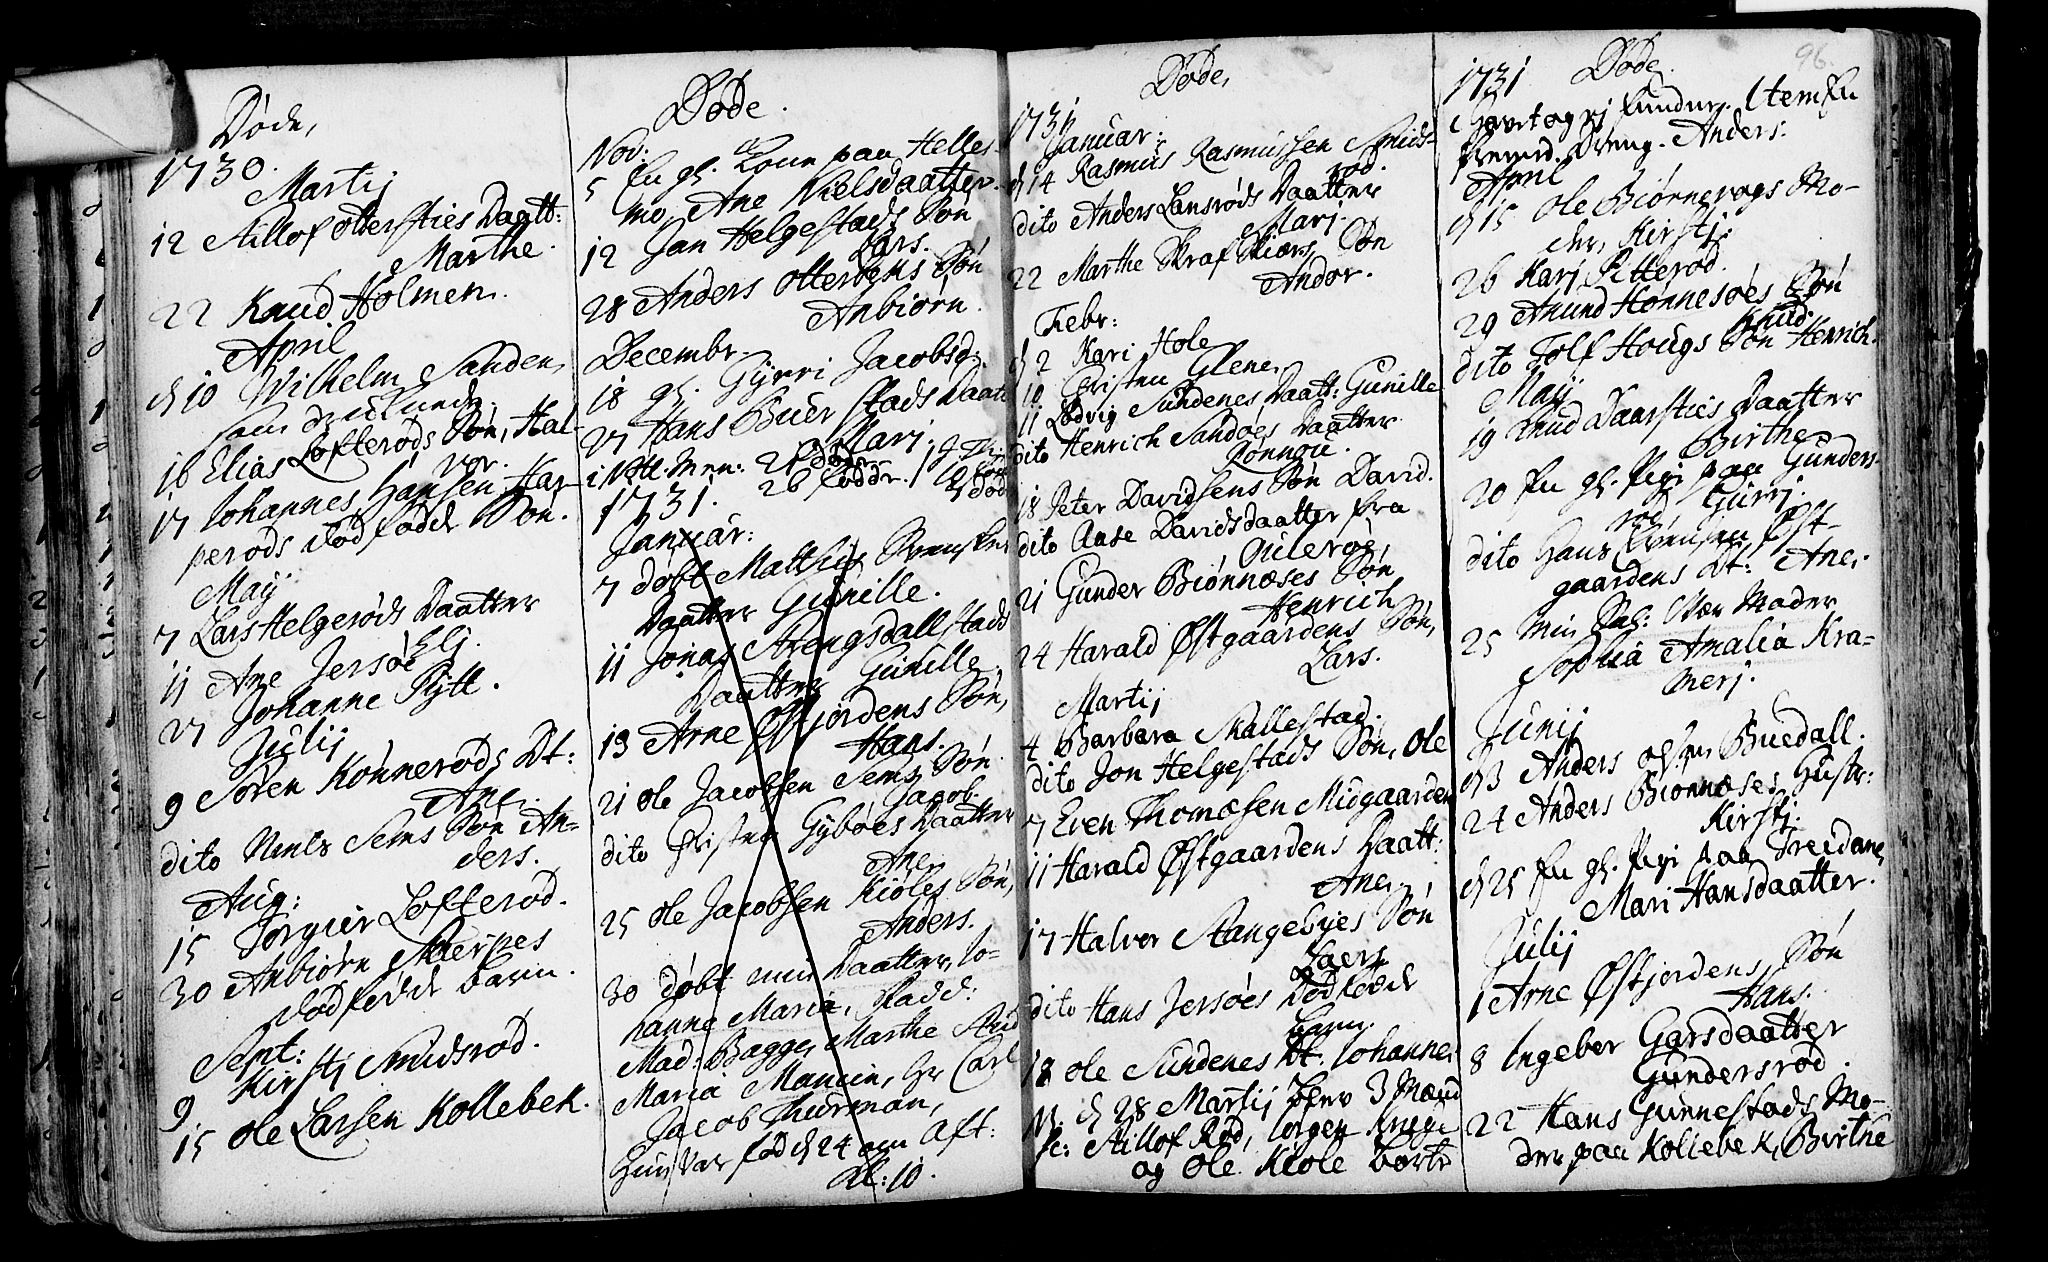 Døde,
1730.
Martij
12 Stillof Ottersties Daatt:
Marthe.
22 Knud Holmen.
April
d 10 Wilhelm Sanden,
som druknede.
16 Elias Løfterøds Søn, Hal-
vor.
17 Johannes Hansen Har-
perøds dødfødde Søn.
May
7 Lars Helgerøds Daatter
Elj.
11 Ane Jersøe
27 Johanne Pytt.
Julij
9 Søren Kønnerøds Dt:
Ane.
dito Niels Sems Søn An-
ders.
Aug:
15 Torgier Løfterød.
30 Anbiørn Skierpes
dødfødde barn.
Sept:
9 Kirstj Smidsrød.
15 Ole Larsen Kollebek.
Døde.
Nov:
5 En gl. Kone paa Helle-
mo, Ane Nielsdaatter.
12 Jan Helgestads Søn
Lars.
28 Anders Otterbeks Søn
Anbiørn.
Decembr.
18 gl. Gyrri Jacobsd:
27 Hans Buerstads Daatt
Marj.
i Nøtt. Men: 21 døde
26 fødde.
1731.
Januar:
7 døbt Mathis Svenskes
Daatter Gunille.
11 Jonas Strengsdallstads
Daatter Gunille.
13 Arne Østjordens Søn,
Hans.
21 Ole Jacobsen Sems Søn
Jacob
dito Christen Gybøes Daatter
Ane
25 Ole Jacobsen Kiøles Søn,
Anders.
30 døbt min Daatter, Jo-
hanne Maria, Fadd:
Mad: Bagge, Marthe
Maria Mancin, Hr Carl
Jacob Thurman,
Hun var fød d 24 om Aft:
Kl: 10.
Døde,
1731
Januar:
d 14 Rasmus Rasmussen Smids-
rød.
dito Anders Lønsrøds Daatter
Marj.
22 Marthe Skrafskiærs Søn
Andor.
Febr:
d 2 Kari Hole
10 Christen Glene,
11 Lodvig Sundenes Daatt: Gunille
dito Henrich Sandøes Daatter
Rønnou.
18 Peter Davidsens Søn David.
dito Aase Davidsdaatter fra
Oulerøe,
21 Gunder Biønnæses Søn
Henrich
24 Harald Østgaardens Søn,
Lars.
Martij
4 Barbara Skallestad.
dito Jon Helgestads Søn, Ole
7 Even Thomæsen Midgaarden
11 Harald Østgaardens Daatt:
Ane.
17 Halvor Stangebyes Søn
Laers
dito Hans Jersøes dødfødde
barn.
18 Ole Sundenes Dt: Johanne.
d 28 Martij blev 3 Mænd
Stillof Rød, Jørgen
og Ole Kiøle borte
96.
1731 Døde.
Item En
fremd. Dreng. Anders.
April
d 15 Ole Biørnevogs Mo-
der, Kirstj.
26 Karj Pitterød.
29 Anund Honnesøes Søn
Knud.
dito Tolf Hougs Søn Henrich.
May
19 Knud Daarsties Daatter
Birthe
20 En gl. Pigi paa Gunders-
rød, Gurrj.
dito Hans Evensen Øst-
gaardens Dt: Ane.
25 Min Sal: Kiær Moder
Sophia Amalia Kra-
merj.
Junij
d 3 Anders Olsen Buedall.
24 Anders Biønnæses Hustr:
Kirstj.
d 25 En gl. Pigi paa Treidene,
Mari Hansdaatter.
Julij
1 Arne Østjordens Søn
Hans.
8 Ingebor Garsdaatter
Gundersrød.
22 Hans Gunnestads Mo-
der paa Kollebek, Birthe